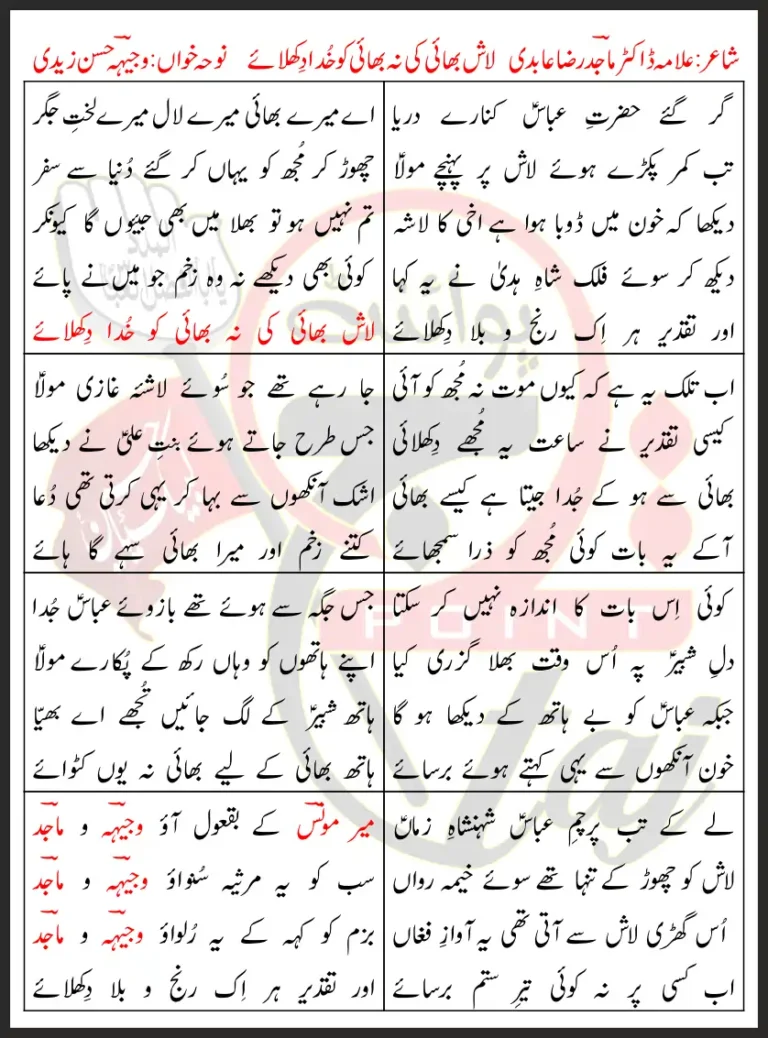 شاعر: علامہ ڈاکٹر ماجد رضا عابدی لاش بھائی کی نہ بھائی کو خُدا دِکھلائے نوحہ خواں: وجیہہ حسن زیدی
گر گئے حضرتِ عباسؑ کنارے دریا
تب کمر پکڑے ہوئے لاش پر پہنچے مولاؑ
دیکھا کہ خون میں ڈوبا ہوا ہے اخی کا لاشہ
دیکھ کر سوئے فلک شاہِ ہدیٰ نے یہ کہا
اور تقدیر ہر اِک رنج و بلا دِکھلائے
اے میرے بھائی میرے لال میرے لختِ جگر
چھوڑ کر مُجھ کو یہاں کر گئے دُنیا سے سفر
تم نہیں ہو تو بھلا میں بھی جیئوں گا کیونکر
کوئی بھی دیکھے نہ وہ زخم جو میں نے پائے
لاش بھائی کی نہ بھائی کو خُدا دِکھلائے
اب تلک یہ ہے کہ کیوں موت نہ مُجھ کو آئی
کیسی تقدیر نے ساعت یہ مُجھے دِکھلائی
بھائی سے ہو کے جُدا جیتا ہے کیسے بھائی
آکے یہ بات کوئی مُجھ کو ذرا سمجھائے
جا رہے تھے جو سُوئے لاشئہ غازی مولاؑ
جس طرح جاتے ہوئے بنتِ علیؑ نے دیکھا
اشک آنکھوں سے بہا کر یہی کرتی تھی دُعا
کتنے زخم اور میرا بھائی سہے گا ہائے
کوئی اِس بات کا اندازہ نہیں کر سکتا
دلِ شبیرؑ پہ اُس وقت بھلا گزری کیا
جبکہ عباسؑ کو بے ہاتھ کے دیکھا ہو گا
خون آنکھوں سے یہی کہتے ہوئے برسائے
جس جگہ سے ہوئے تھے بازوئے عباسؑ جُدا
اپنے ہاتھوں کو وہاں رکھ کے پُکارے مولاؑ
ہاتھ شبیرؑ کے لگ جائیں تُجھے اے بھیّا
ہاتھ بھائی کے لیے بھائی نہ یوں کٹوائے
لے کے تب پرچمِ عباسؑ شہنشاہِ زماںؑ
لاش کو چھوڑ کے تنہا تھے سوئے خیمہ رواں
اُس گھڑی لاش سے آتی تھی یہ آوازِ فغاں
اب کسی پر نہ کوئی تیرِ ستم برسائے
میر مونس کے بقعول آؤ وجیہہ و ماجد
سب کو یہ مرثیہ سُنواؤ وجیہہ و ماجد
بزم کو کہہ کے یہ رُلواؤ وجیہہ و ماجد
اور تقدیر ہر اِک رنج و بلا دِکھلائے
پوائنٹ
POINT
taj